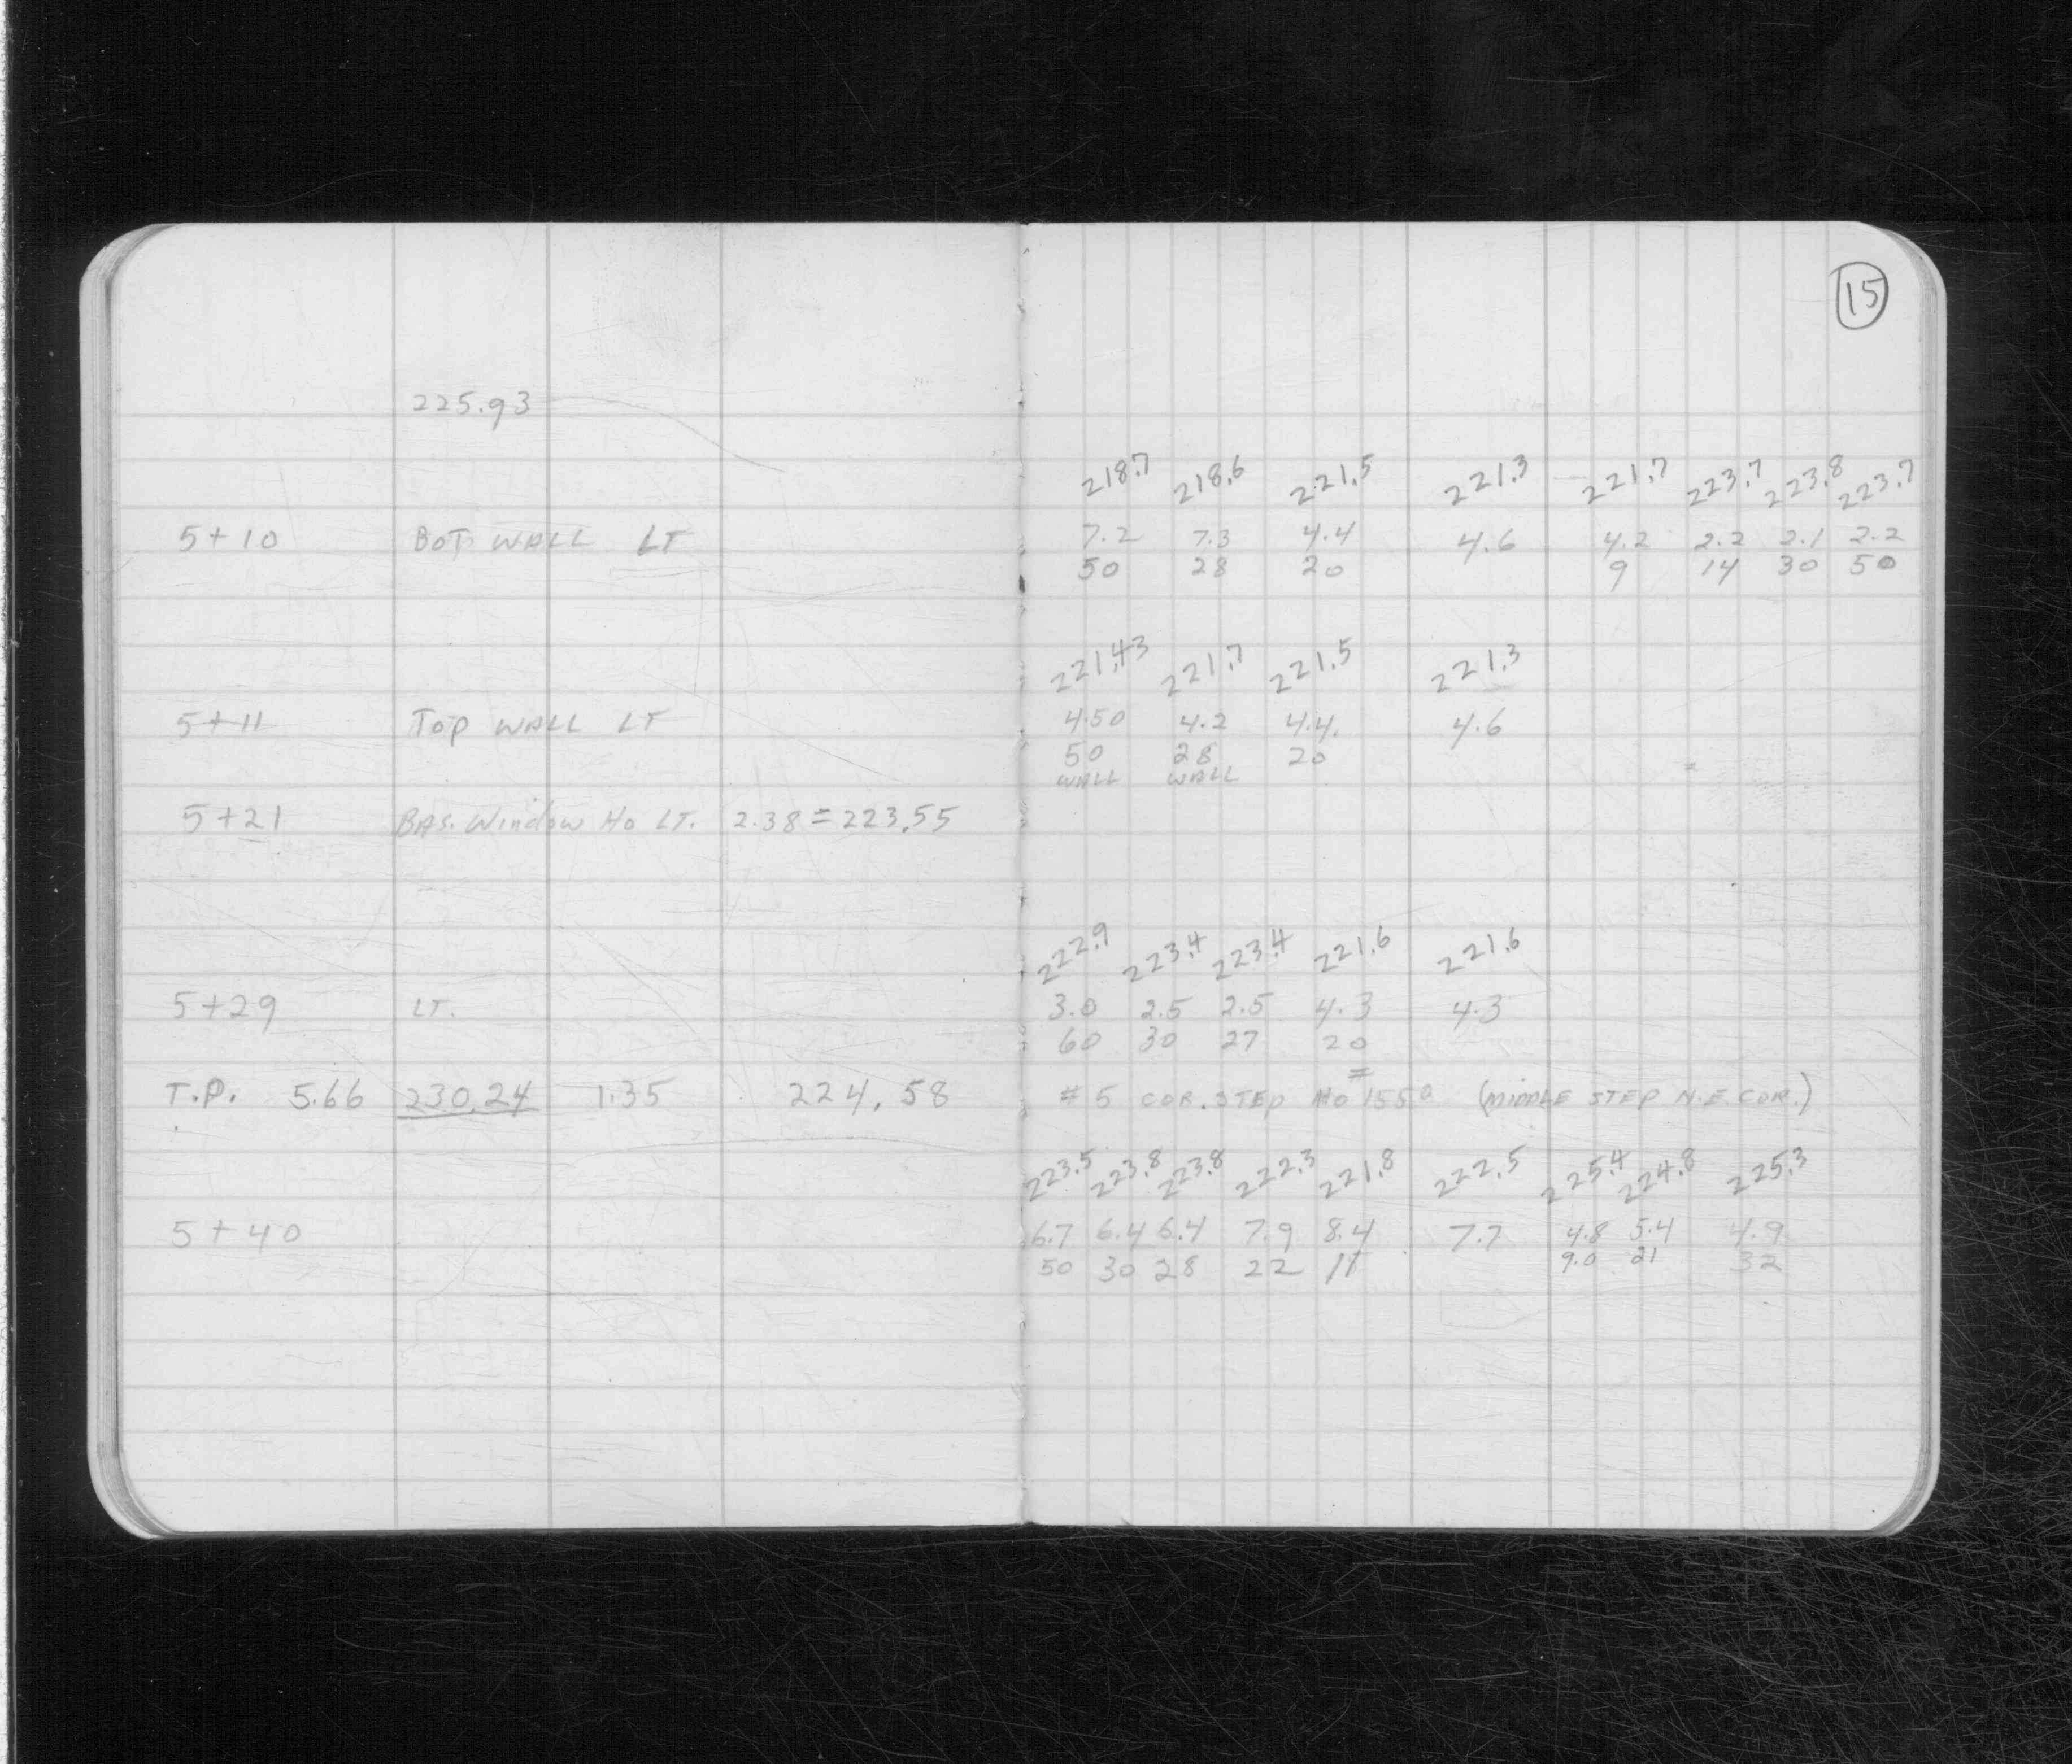 15
225.93
218.7 218.6 221.5 221.3 221.7 223.7 223.8 223.7
5+10 BOT WALL LT 7.2 7.3 4.4 4.6 4.2 2.2 2.1 2.2
50 28 20 9 14 30 50
221.43 221.7 221.5 221.3
5+11 TOP WALL LT 4.50 4.2 4.4 4.6
50 28 20
WALL WALL
5+21 BAS. Window Ho LT. 2.38 = 223.55
222.9 223.4 223.4 221.6 221.6
5+29 LT. 3.0 2.5 2.5 4.3 4.3
60 30 27 20
T.P. 5.66 230.24 1.35 224.58 # 5 COR. STEP Ho 1550 (MIDDLE STEP N.E. COR.)
223.5 223.8 223.8 222.3 221.8 222.5 225.4 224.8 225.3
5+40 6.7 6.4 6.4 7.9 8.4 7.7 4.8 5.4 4.9
50 30 28 22 11 9.0 21 32